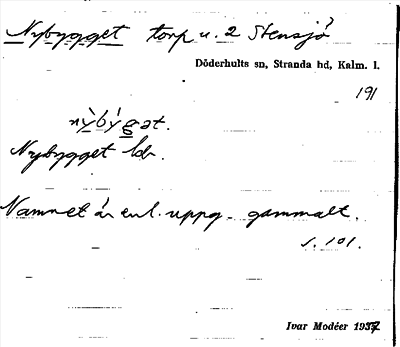 Nybygget torp u. 2 Stensjö
Döderhults sn, Stranda hd, Kalm. l.
191
nỳbýgət.
Nybygget lds.
Namnet är enl. uppg. gammalt.
s. 101.
Ivar Modéer 1937